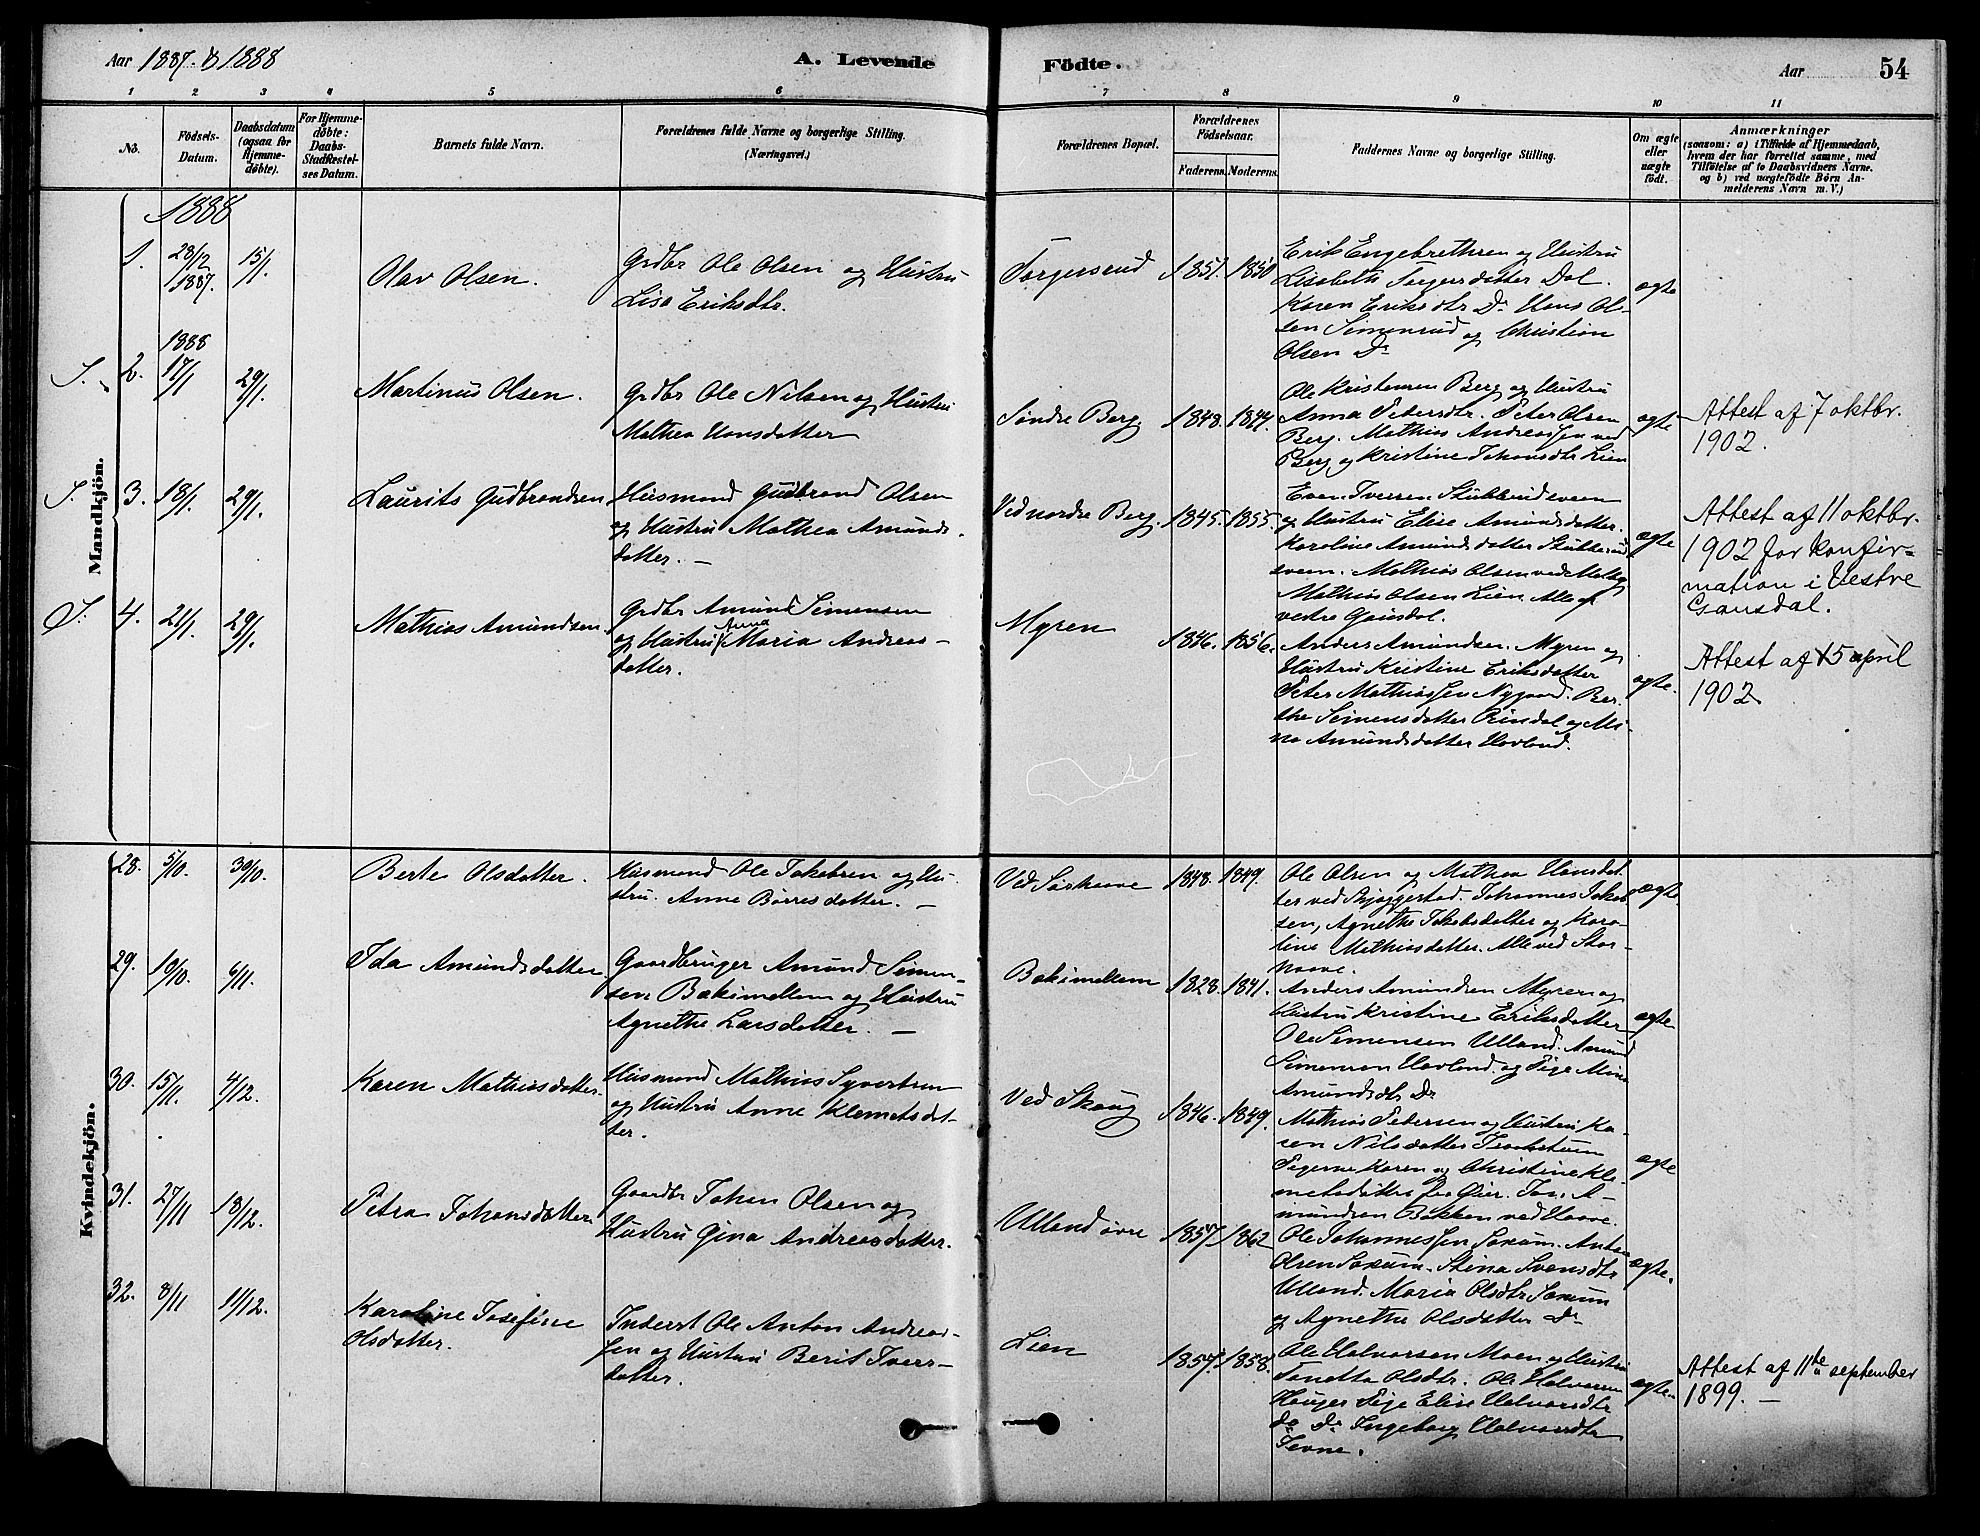 Aar 1887 & 1888
A. Levende
Födte.
Aar
54
1 2 3 4 5 6 7 8 9 10 11
No.
Födsels-Datum.
Daabsdatum (ogsaa for Hjemme-döbte).
For Hjemme-döbte: Daabs-Stadfæstel-ses Datum.
Barnets fulde Navn.
Forældrenes fulde Navne og borgerlige Stilling.
(Næringsvei.)
Forældrenes Bopæl.
Forældrenes Födselsaar.
Faderens. Moderens.
Faddernes Navne og borgerlige Stilling.
Om ægte eller uægte födt.
Anmærkninger
(saasom: a) i Tilfælde af Hjemmedaab,
hvem der har forrettet samme, med
Tilföielse af to Daabsvidners Navne.
og b) ved uægtefödte Börn An-
melderens Navn m. V.)
Mandkjön.
1888
1. 28/12 1887. 15/1.
Olav Olsen.
Grdbr Ole Olsen og Hustru
Lisa Eriksdtr.
Torgersrud
1851. 1850
Erik Engebrethsen og Hustru
Lisabeth Torgersdatter Dal.
Karen Eriksdtr Do Hans Ol-
sen Simenrud og Christian
Olsen Do
ægte
S. 2. 1888 17/1 29/1.
Martinus Olsen.
Grdbr Ole Nilsen og Hustru
Mathea Hansdatter
Søndre Berg.
1848. 1844.
Ole Kristensen Berg og Hustru
Anna Pedersdtr. Peter Olsen
Berg. Mathias Andreassen ved
Berg og Kristine Johansdtr Lien
ægte
Attest af 7 oktbr.
1902.
S. 3. 18/1. 29/1.
Laurits Gudbrandsen
Husmand Gudbrand Olsen
og Hustru Mathea Amunds-
datter. —
Ved nordre Berg.
1845. 1855.
Even Iversen Stubberudsveen
og Hustru Elise Amundsdatter.
Karoline Amundsdatter Stubberud
sveen. Mathias Olsen ved
Mathias Olsen Lien. Alle af
vestre Gausdal.
ægte
Attest af 11 oktbr.
1902 for konfir-
mation i Vestre
Gausdal.
S. 4. 21/1. 29/1.
Mathias Amundsen.
Grdbr Amund Simensen
og Hustru Anna Maria Andreas-
datter.
Myren
1846. 1856.
Anders Amundsen Myren og
Hustru Kristine Eriksdatter
Peter Mathiassen Nygaard. Ber-
the Simensdatter Rindal og Mi-
na Amundsdatter Havland.
ægte.
Attest af 15 april
1902
Kvindekjön.
28. 5/10. 30/10.
Berte Olsdatter.
Husmand Ole Jakobsen og Hu-
stru Anne Børresdatter. —
Ved
1848. 1849.
Ole Olsen og Mathea Hansdat
ter ved Skjæggestad. Johannes Jakob
sen, Agnethe Jakobsdatter og Karo-
line Mathiasdatter. Alle ved Stor-
haave.
ægte
29. 19/10. 6/11.
Ida Amundsdatter
Gaardbruger Amund Simen-
sen Bakimellem og Hustru
Agnethe Larsdatter. —
Bakimellem
1828. 1841.
Anders Amundsen Myren og
Hustru Kristine Eriksdatter
Ole Simensen Ulland. Amund
Simensen Havland og Pige Mina
Amundsdtr Do
ægte
30. 15/11. 4/12.
Karen Mathiasdatter
Husmand Mathias Syvertsen
og Hustru Anne Klemetsdat-
ter.
Ved Skoug
1846. 1849.
Mathias Pedersen og Hustru Ka-
ren Nilsdatter
Pigerne Karen og Christine Kle-
metsdøttre fra Øier.
mundsen Bakken ved Haave.
ægte
31. 27/11 18/12.
Petra Johansdatter
Gaardbr Johan Olsen og
Hustru Gina Andreasdatter.
Ulland øvre
1857. 1862
Ole Johannessen Saxum. Anton
Olsen Saxum. Stina Svensdtr
Ulland. Maria Olsdtr Saxum
og Agnethe Olsdatter Do
ægte.
32. 8/11 11/12.
Karoline Josefine
Olsdatter.
Inderst Ole Anton Andreas-
sen og Hustru Berit Ivers-
datter.
Lien
1857. 1858.
Ole Halvorsen Moen og Hustru
Janetta Olsdtr. Ole Halvorsen
Hauger Pige Elise Halvorsdtr
do Do Ingeborg Halvorsdtr
Jevne.
ægte
Attest af 11te september
1899. —